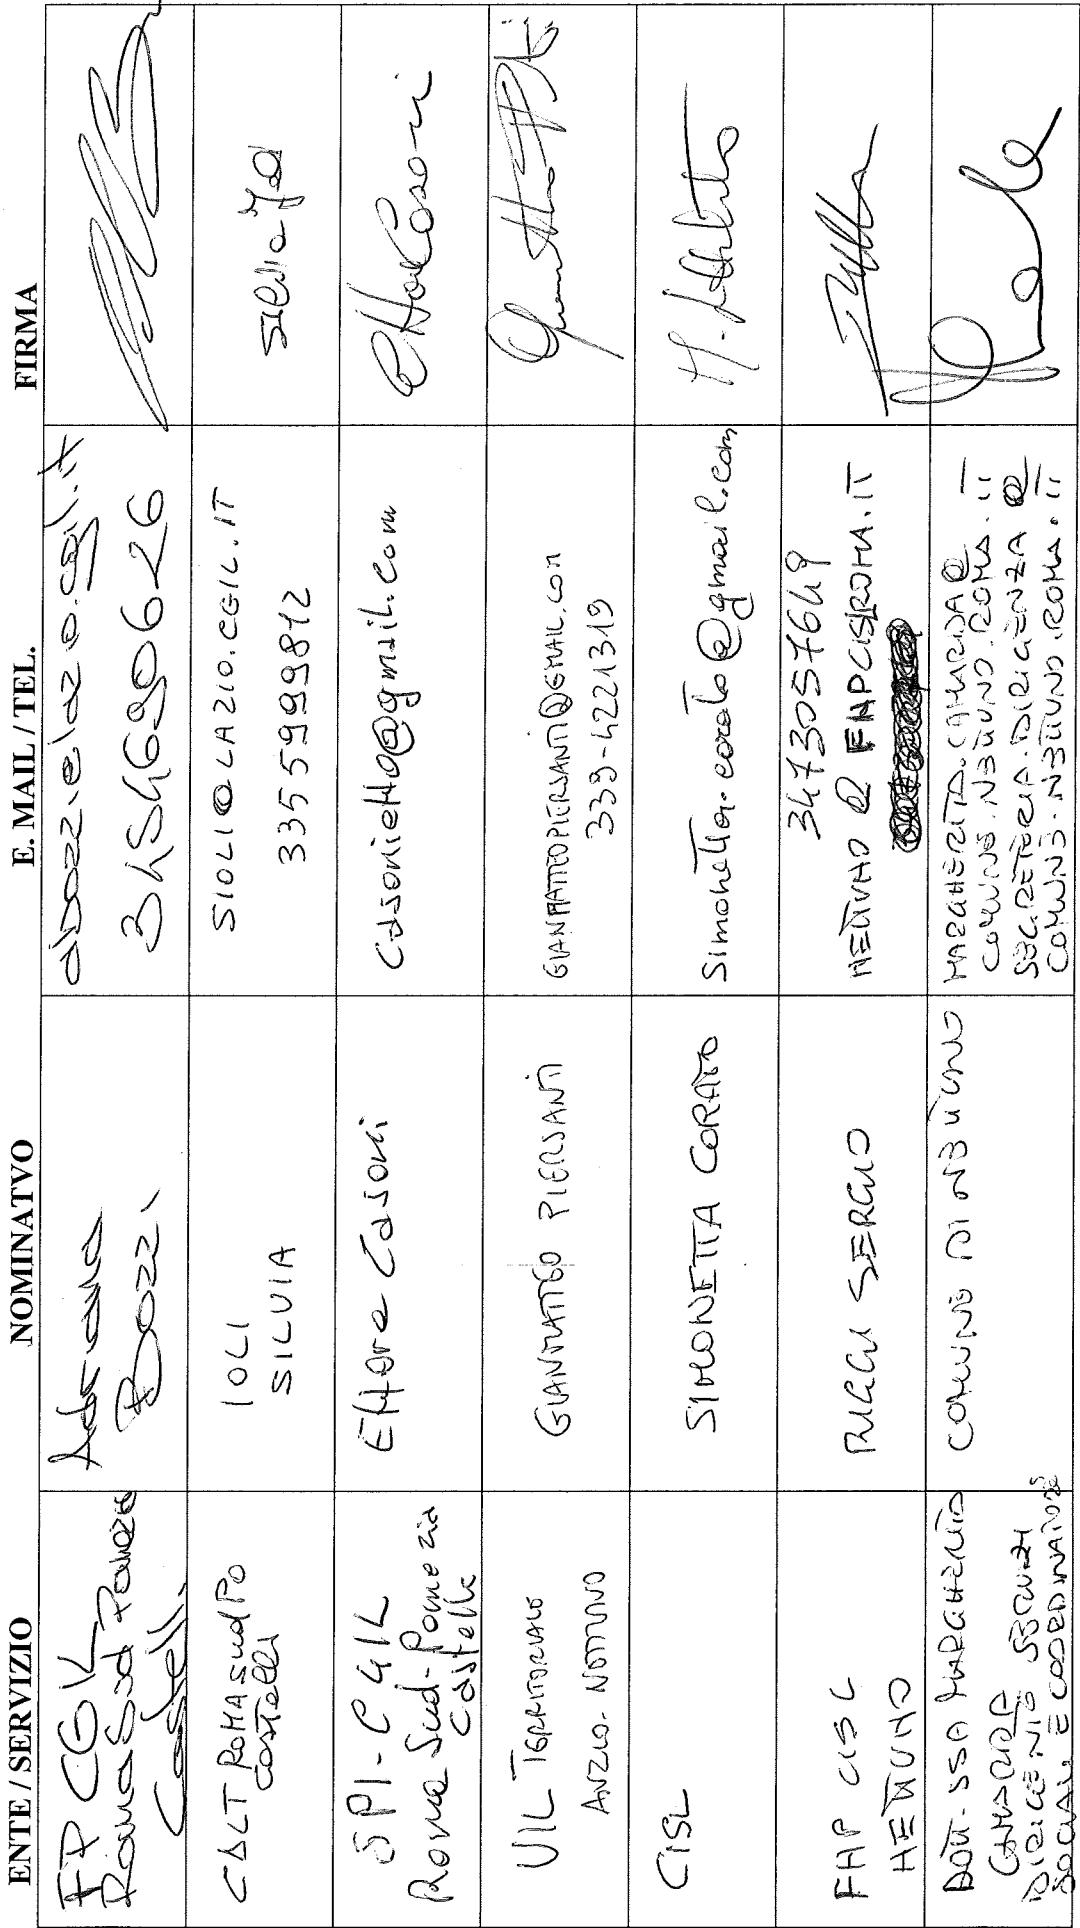 ENTE / SERVIZIO NOMINATVO E. MAIL / TEL. FIRMA
FP CGIL
Roma Sud Pomezia
Castelli
Adriana
Bozzi
abozzi@lazio.cgil.it
3454690626
CDLT ROMA SUD PO
CASTELLI
IOLI
SILVIA
SIOLI@LAZIO.CGIL.IT
3355999812
Silvia Ioli
SPI - CGIL
Roma Sud - Pomezia
Castelli
Ettore Casoni
casonietto@gmail.com
Ettore Casoni
UIL TERRITORIALE
ANZIO - NETTUNO
GIANMATTEO PIERSANTI
GIANMATTEOPIERSANTI@GMAIL.COM
339-4221319
CISL
SIMONETTA CORATO
Simonetta.corato@gmail.com
FNP CISL
NETTUNO
RIGGI SERGIO
3473057649
NETTUNO @ FNPCISLROMA.IT
DOTT.SSA MARGHERITA
CAMARDA
DIRIGENTE SERVIZI
SOCIALI E COORDINATORE
COMUNE DI NETTUNO
MARGHERITA.CAMARDA@
COMUNE.NETTUNO.ROMA.IT
SEGRETERIA.DIRIGENZA@
COMUNE.NETTUNO.ROMA.IT